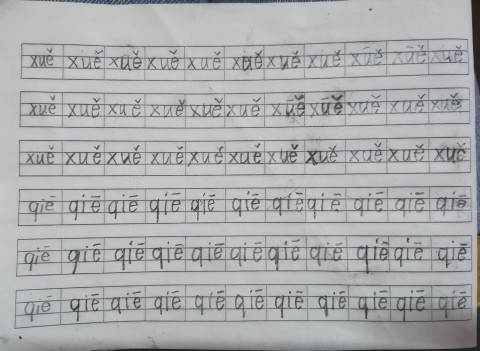 xuě xuě xuě xuě xuě xuě xuě xuě xuě xuě xuě
xuě xuě xuě xuě xuě xuě xuě xuě xuě xuě xuě
xuě xuě xuě xuě xuě xuě xuě xuě xuě xuě xuě
qiē qiē qiē qiē qiē qiē qiē qiē qiē qiē qiē
qiē qiē qiē qiē qiē qiē qiē qiē qiē qiē qiē
qiē qiē qiē qiē qiē qiē qiē qiē qiē qiē qiē